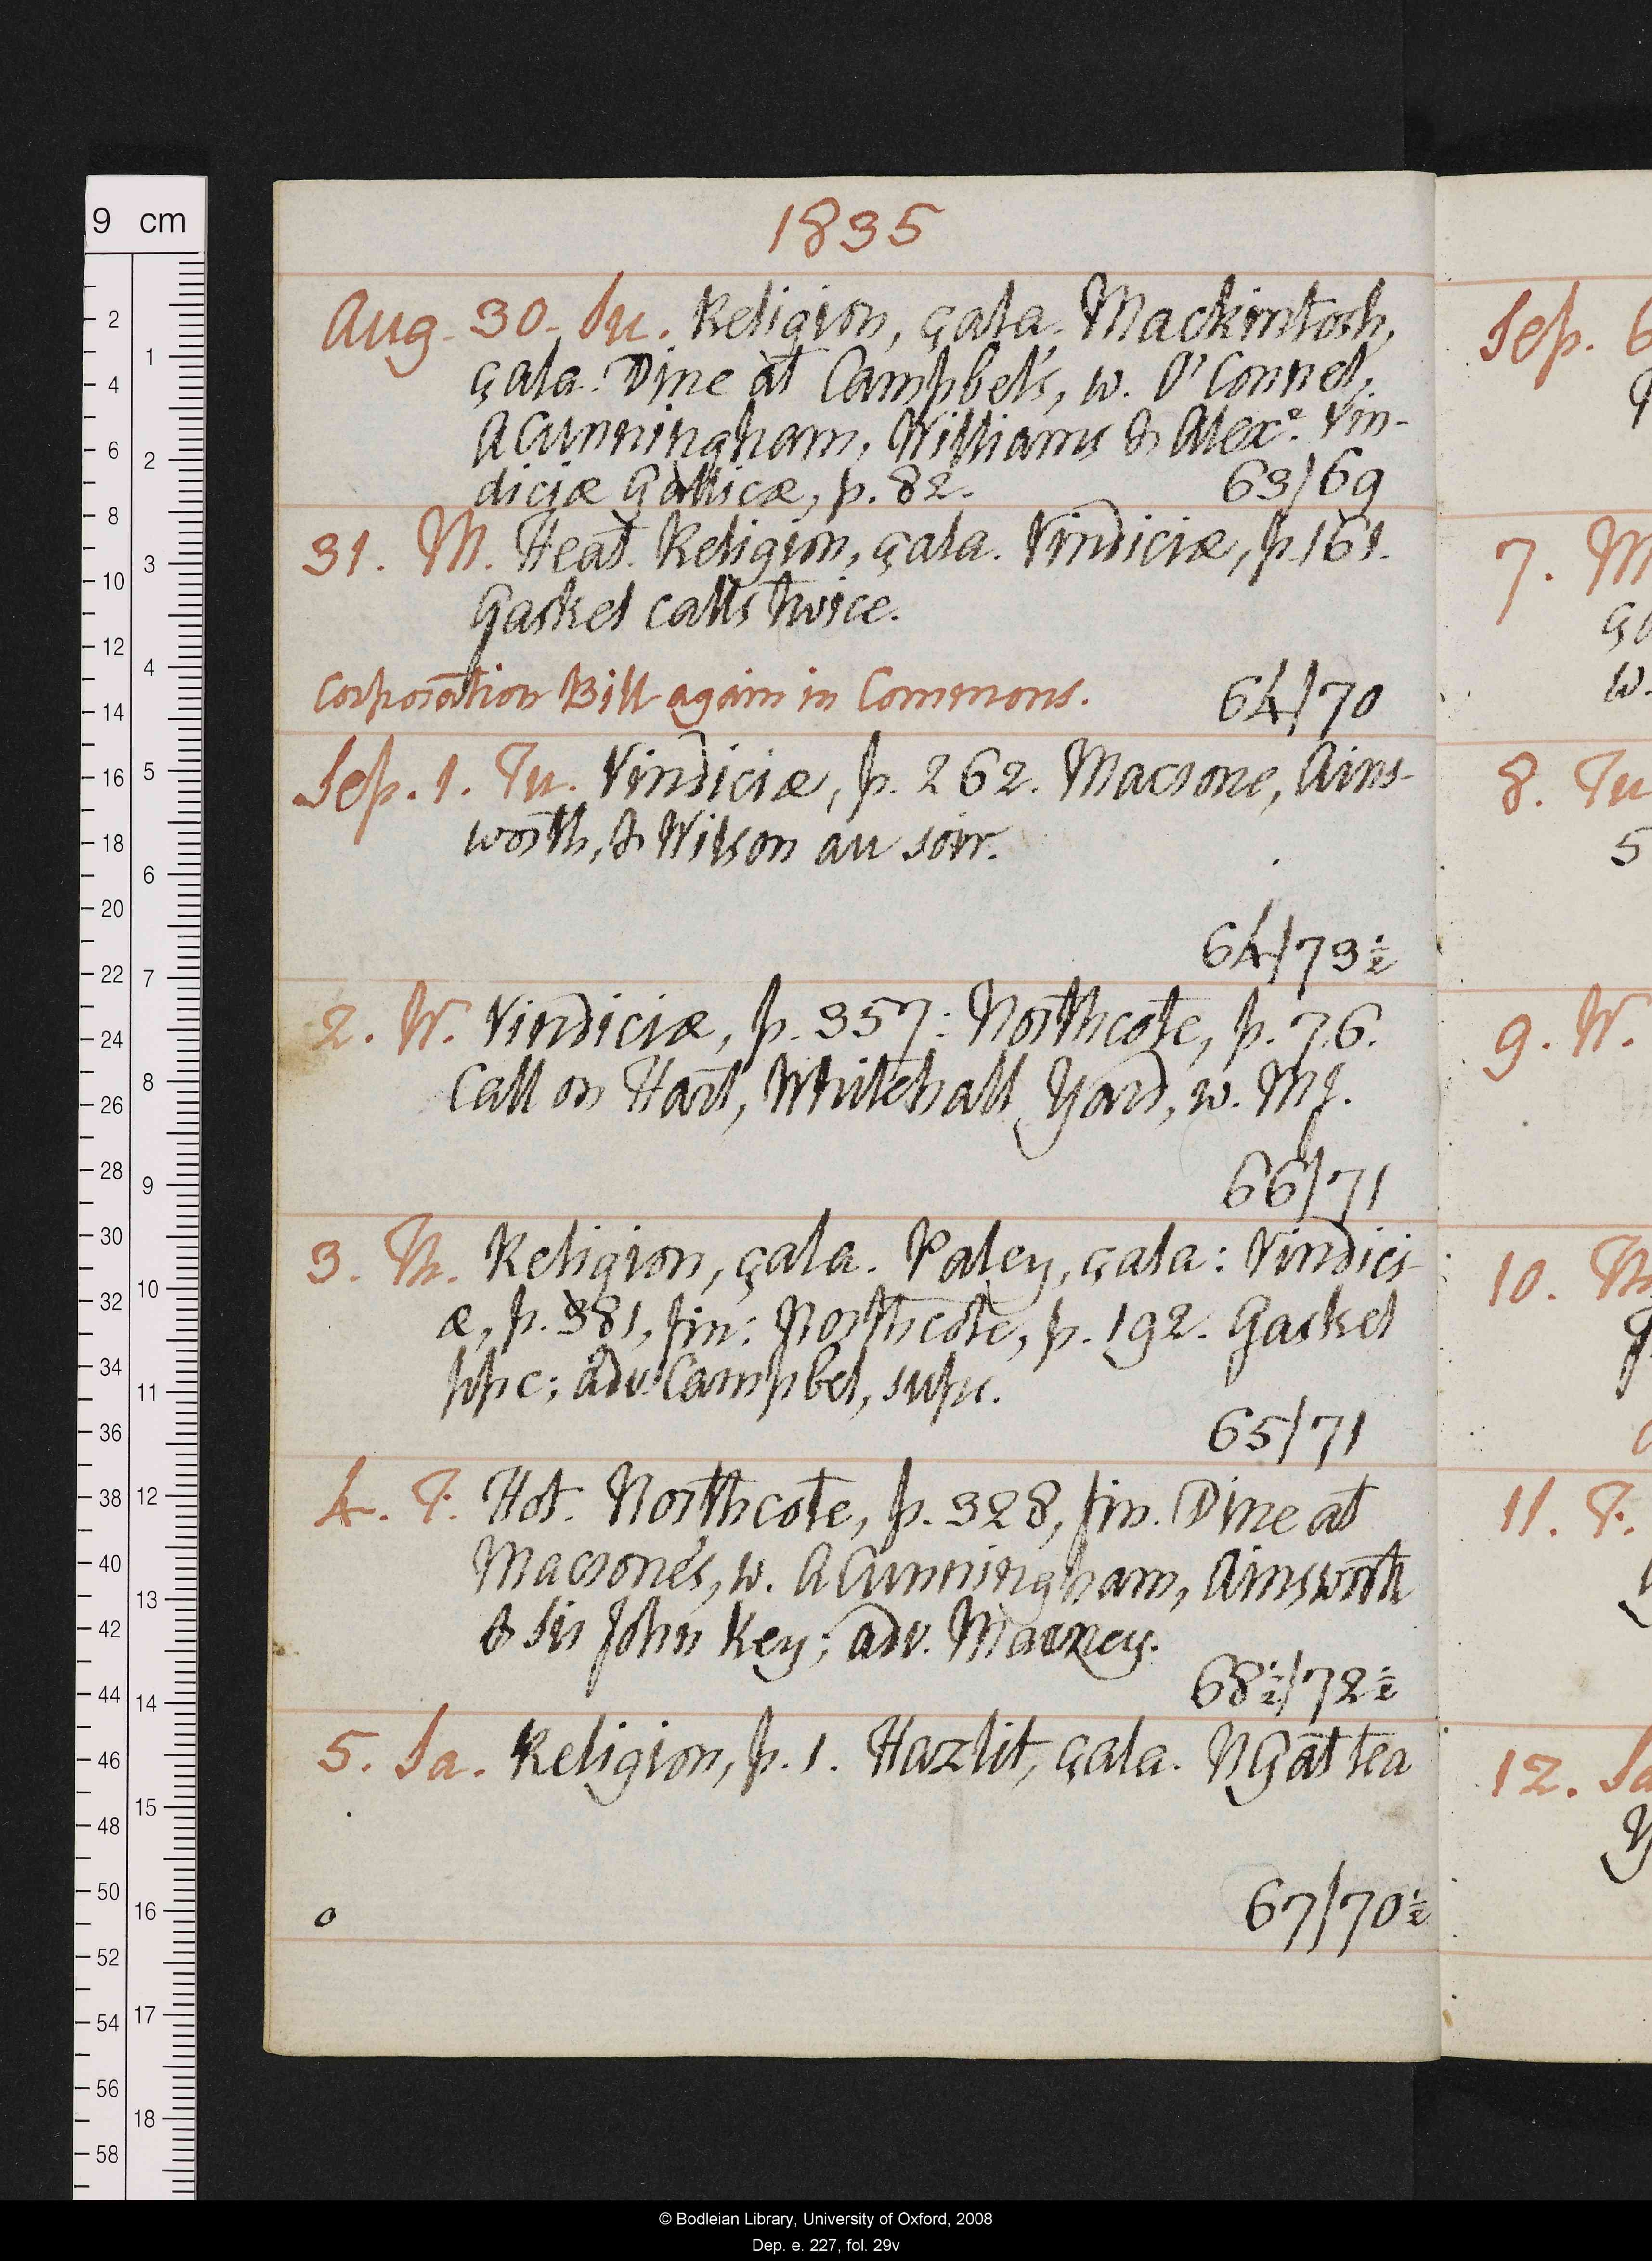 1835
Aug. 30. Su. Religion, çala. Mackintosh,
çala. Dine at Campbel's, w. O'Connel,
ACunningham, Williams & Alexr. Vin-
diciæ Gallicæ, p. 82. 63/69
31. M. Heat. Religion, çala. Vindiciæ, p. 161.
Gaskel calls twice.
Corporation Bill again in Commons. 64/70
Sep. 1. Tu. Vindiciæ, p. 262. Macrone, Ains-
worth, & Wilson au soir.
64/73½
2. W. Vindiciæ, p. 357: Northcote, p. 76.
Call on Hart, Whitehall Yard, w. MJ.
66/71
3. Th. Religion, çala. Paley, çala: Vindici-
æ, p. 381, fin: Northcote, p. 192. Gaskel
ppc; adv. Campbel, supr.
65/71
4. F. Hot. Northcote, p. 328, fin. Dine at
Macrone's, w. ACunningham, Ainsworth
& Sir John Key; adv.
68½/72½
5. Sa. Religion, p. 1. Hazlit, çala. NG at tea
67/70½
Sep. 6
7. M
w.
8. Tu
5
9. W.
10. Th
11. F.
12. Sa
9 cm
2
4
6
8
10
12
14
16
18
20
22
24
26
28
30
32
34
36
38
40
42
44
46
48
50
52
54
56
58
1
2
3
4
5
6
7
8
9
10
11
12
13
14
15
16
17
18
© Bodleian Library, University of Oxford, 2008
Dep. e. 227, fol. 29v